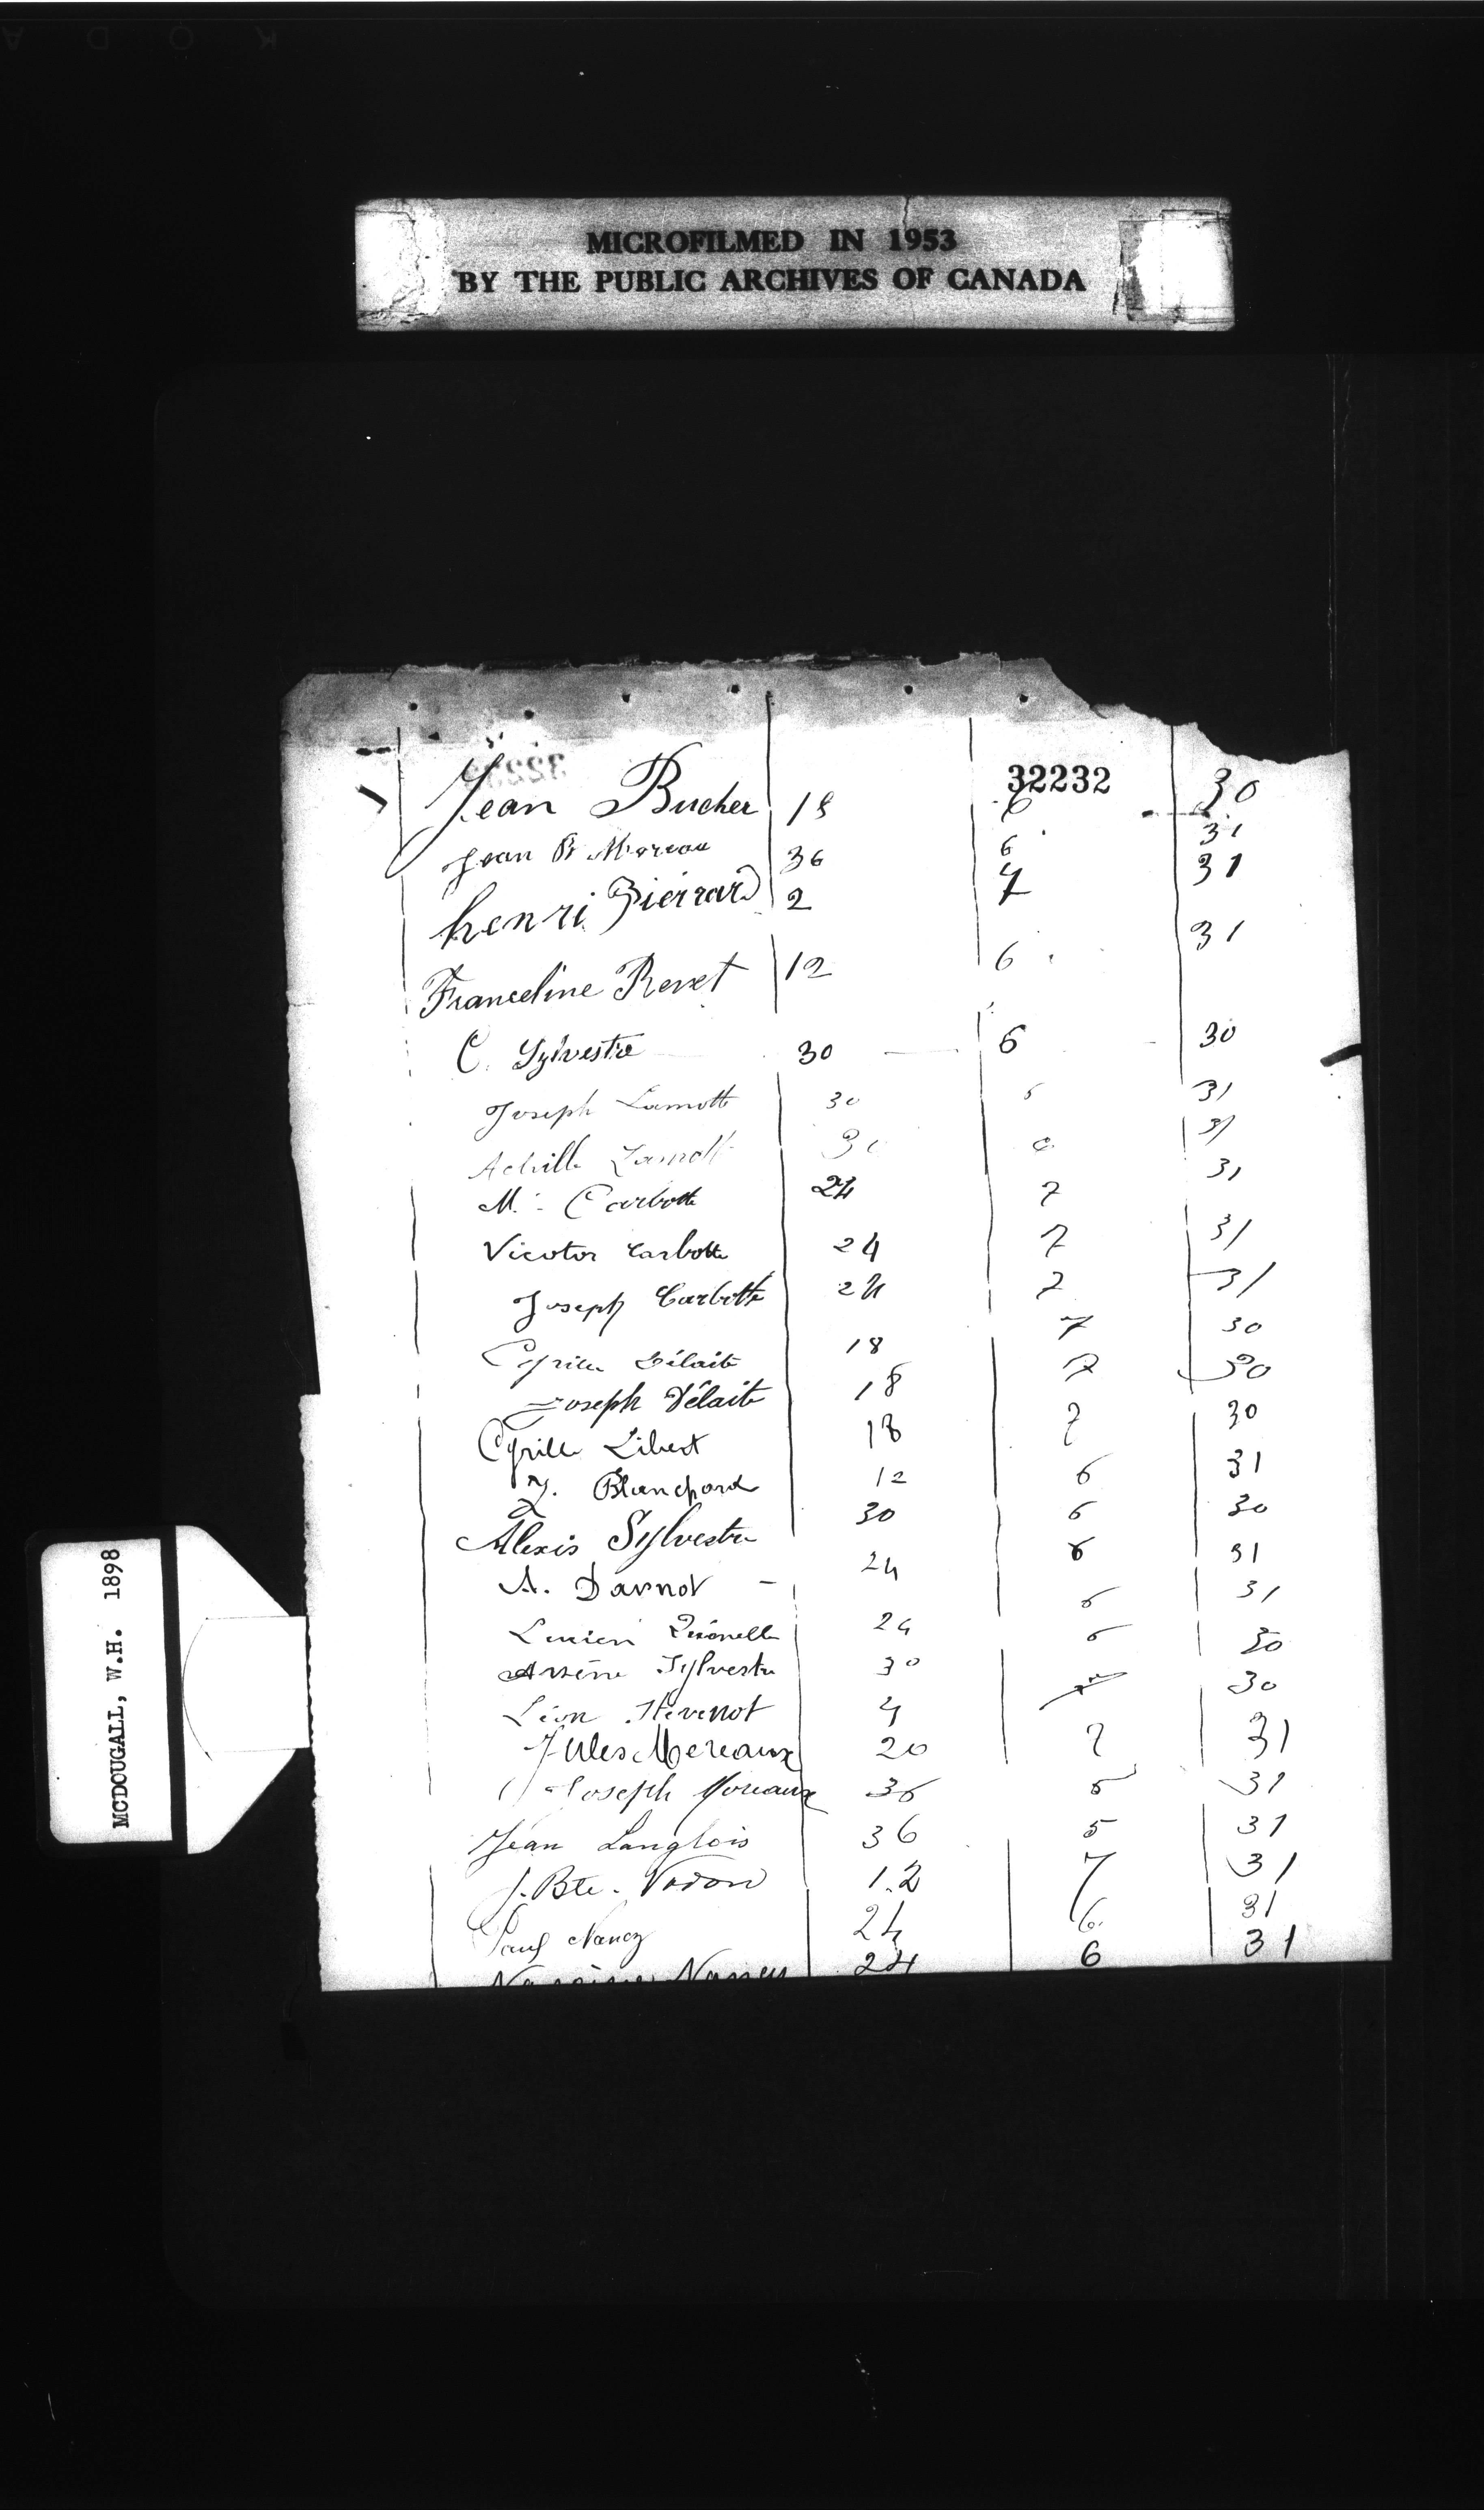 KODA
MICROFILMED IN 1953
BY THE PUBLIC ARCHIVES OF CANADA
32232
Jean Bucher 18 6 30
Jean Bt Moreau 36 6 31
henri Pierrard 2 7 31
Franceline Revet 12 6 31
C. Sylvestre 30 6 30
Joseph Lamotte 30 6 31
Achille Lamotte 30 6 31
M. Carbotte 24 7 31
Vicotor Carbotte 24 7 31
Joseph Carbotte 24 7 31
Cyrille Délaite 18 7 30
Joseph Délaite 18 7 30
Cyrille Libert 18 7 30
J. Blanchard 12 6 31
Alexis Sylvestre 30 6 30
A. Davnot - 24 6 31
Lucien 24 6 31
Arsène Sylvestre 30 6 30
Léon Hevenot 4 7 30
Jules Mereaux 20 7 31
Joseph Moreaux 36 5 31
Jean Langlois 36 5 31
J. Bte. Nodon 12 7 31
Paul Nancy 24 6 31
Nancy 24 6 31
MCDOUGALL, W.H. 1898